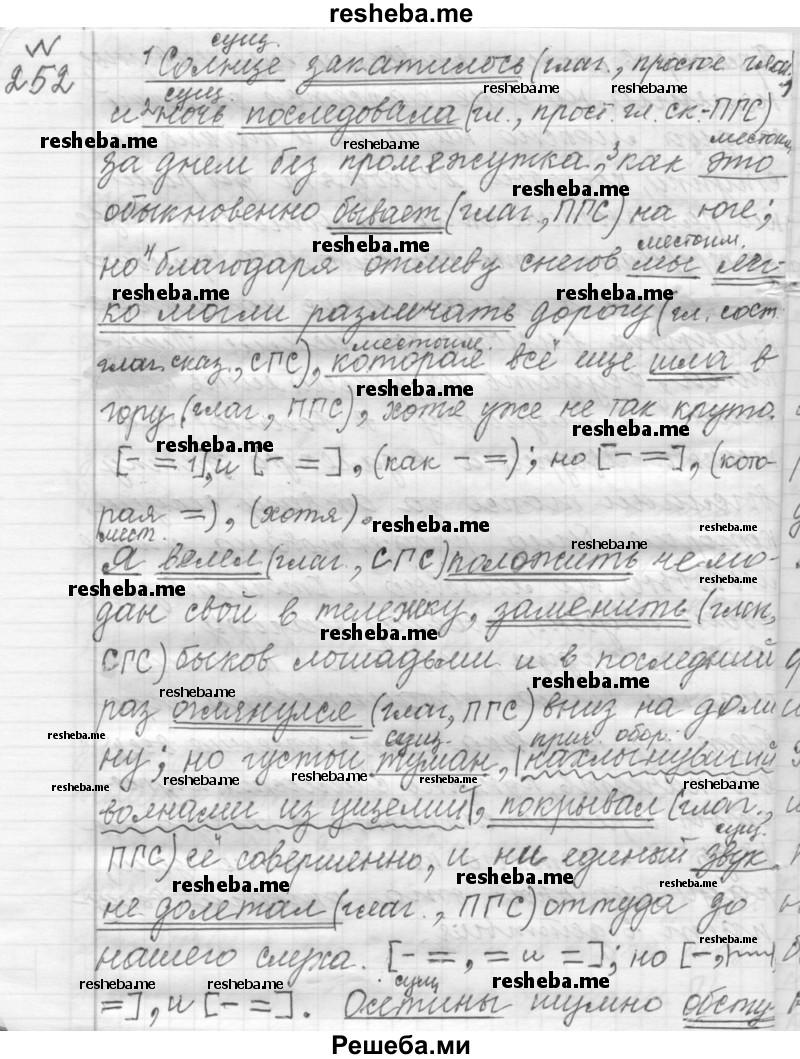 resheba.me
№ 252
сущ.
¹Солнце закатилось (глаг., простое глаг.,
сущ.
и ²ночь последовала (гл., прост. гл. ск.-ПГС)
местоим.
за днем без промежутка, ³как это
обыкновенно бывает (глаг., ПГС) на юге;
местоим.
но ⁴благодаря отливу снегов мы лег-
ко могли различать дорогу (гл. сост.
местоим.
глаг. сказ., СГС), которая всё ещё шла в
гору (глаг., ПГС), хотя уже не так круто.
[- = 1], и [- =], (как - =); но [- =], (кото-
рая =), (хотя).
мест.
Я велел (глаг., СГС) положить чемо-
дан свой в тележку, заменить (глаг.,
СГС) быков лошадьми и в последний
раз оглянулся (глаг., ПГС) вниз на доли
сущ. прич. обор.
ну; но густой туман, |нахлынувший
волнами из ущелий|, покрывал (глаг.,
сущ.
ПГС) её совершенно, и ни единый звук
не долетал (глаг., ПГС) оттуда до
нашего слуха. [- =, = и =]; но [-,
=], и [- =].
сущ.
Осетины шумно обсту
resheba.me
Решеба.ми